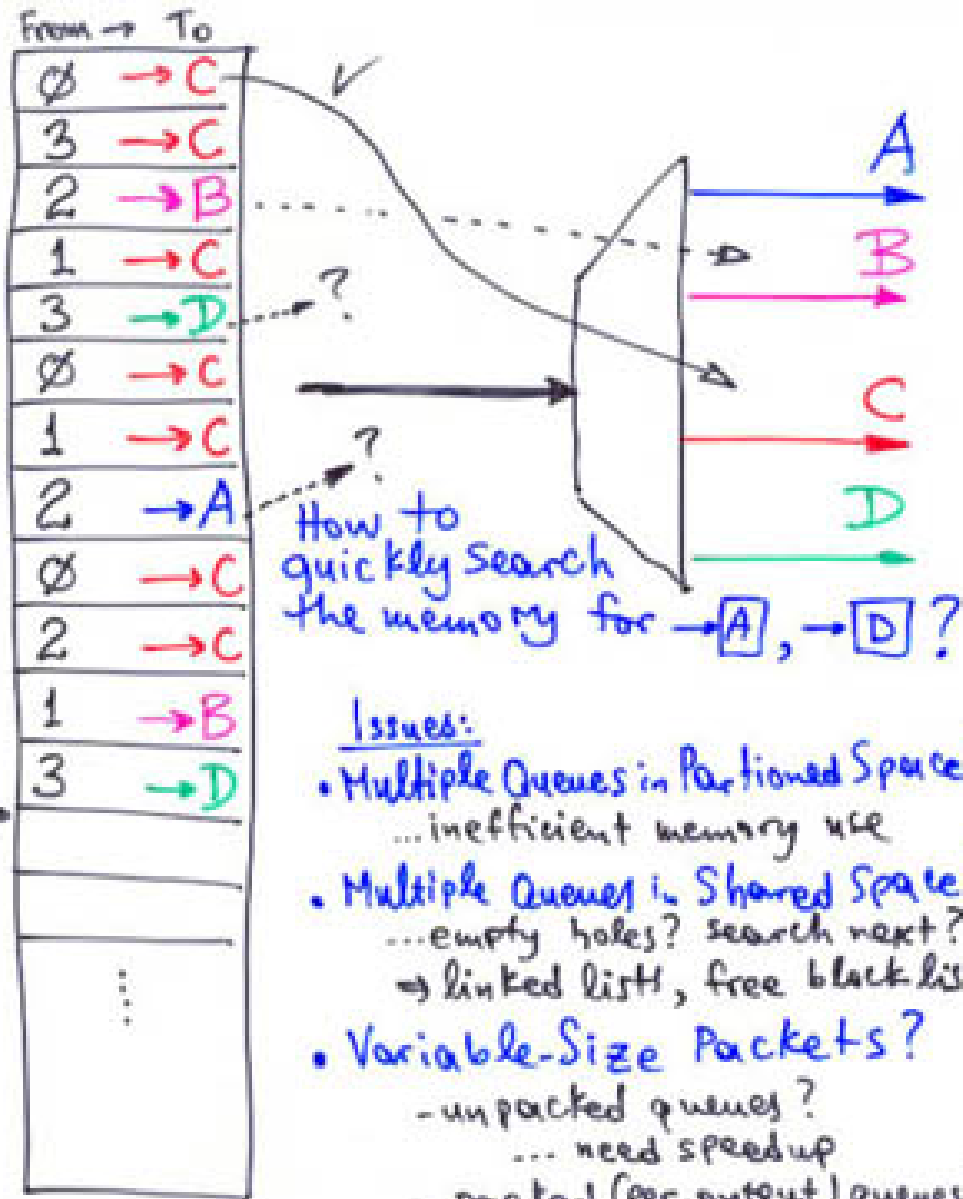 From → To
Ø → C
3 → C
2 → B
1 → C
3 → D
Ø → C
1 → C
2 → A
Ø → C
2 → C
1 → B
3 → D
?
?
A
B
C
D
How to
quickly search
the memory for → A, → D ?
Issues:
• Multiple Queues in Partioned Space
...inefficient memory use
• Multiple Queues in Shared Space
...empty holes? search next?
⇒ linked lists, free block lis
• Variable-Size Packets?
- unpacked queues?
... need speedup
- packed (per output) queues